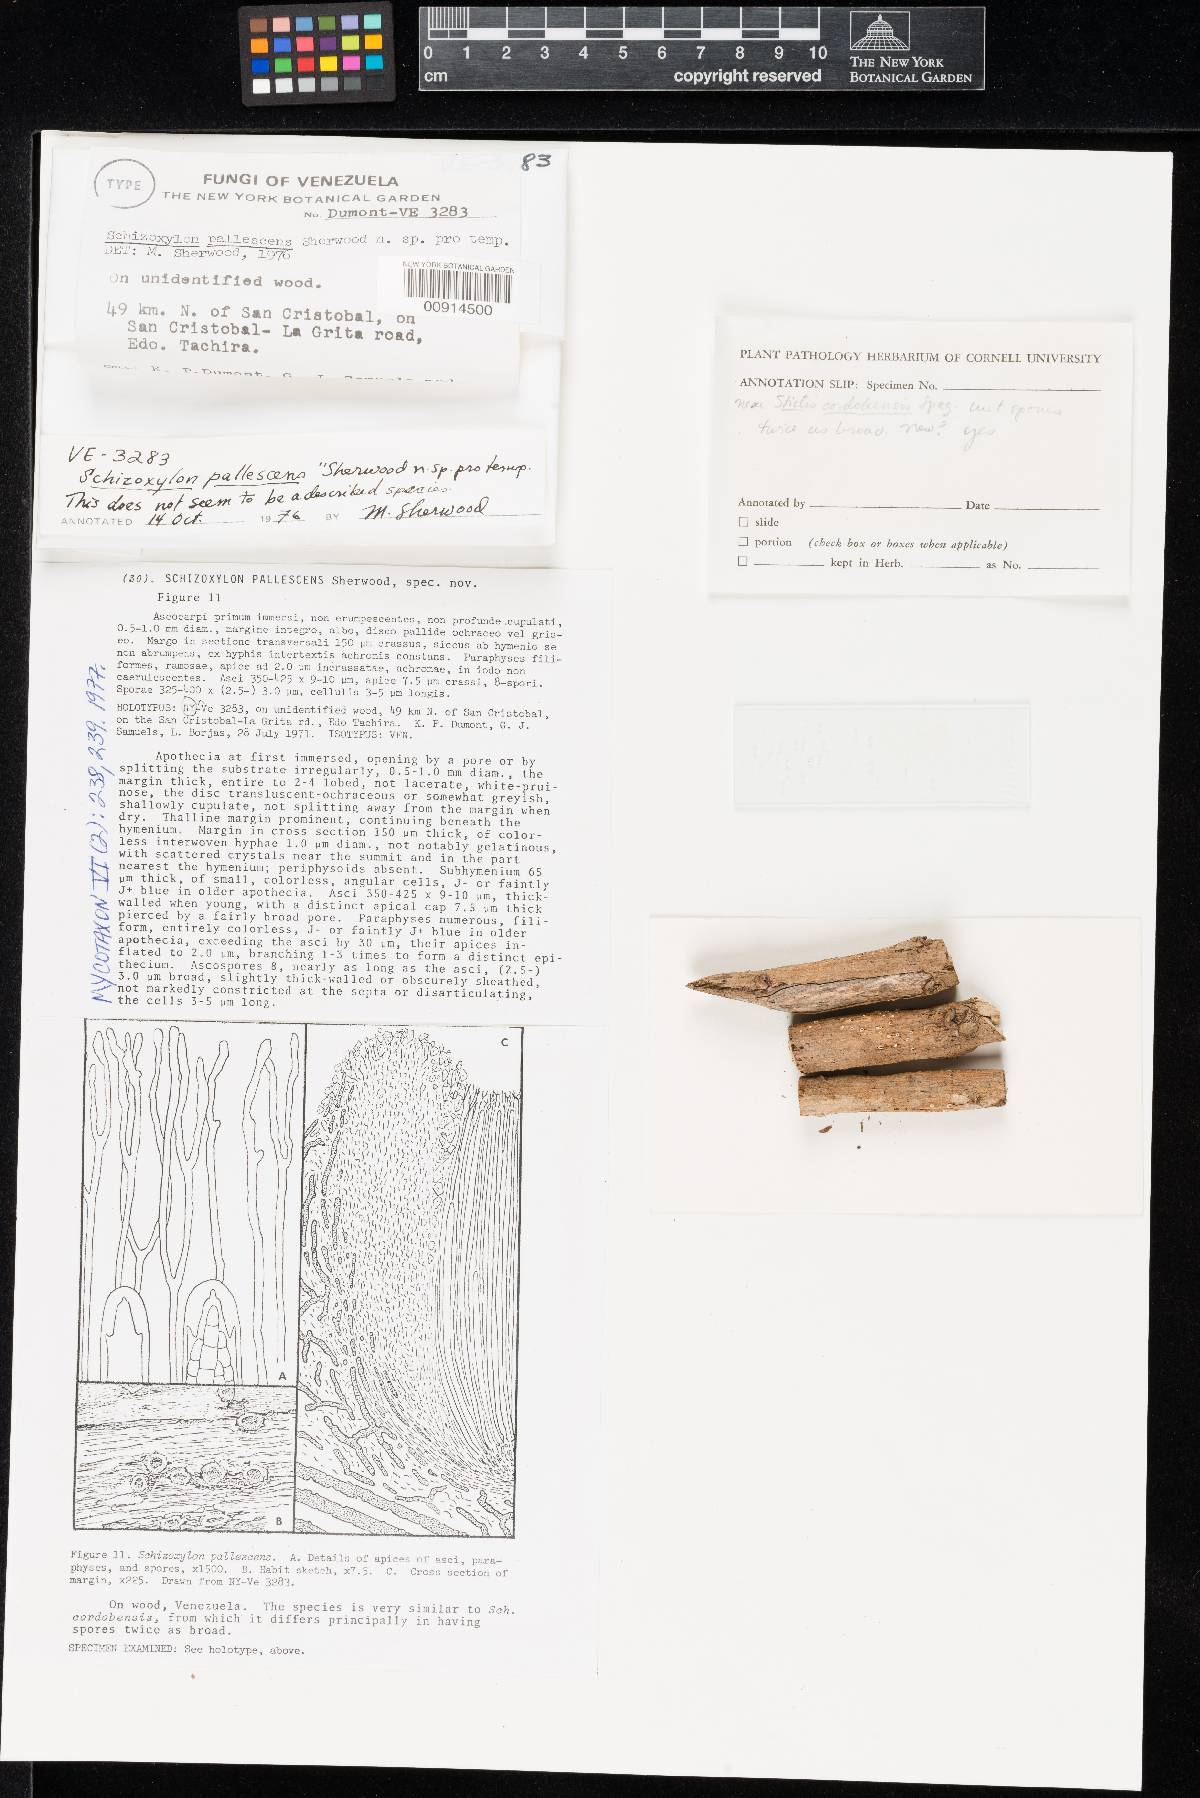 0 1 2 3 4 5 6 7 8 9 10
cm copyright reserved
THE NEW YORK
BOTANICAL GARDEN
83
TYPE
FUNGI OF VENEZUELA
THE NEW YORK BOTANICAL GARDEN
No. Dumont-VE 3283
Schizoxylon pallescens Sherwood n. sp. pro temp.
DET: M. Sherwood, 1976
NEW YORK BOTANICAL GARDEN
00914500
On unidentified wood.
49 km. N. of San Cristobal, on
San Cristobal- La Grita road,
Edo. Tachira.
K. P. Dumont, G. J. Samuels and
VE-3283
Schizoxylon pallescens "Sherwood n. sp. pro temp.
This does not seem to be a described species.
ANNOTATED 14 Oct. 1976 BY M. Sherwood
PLANT PATHOLOGY HERBARIUM OF CORNELL UNIVERSITY
ANNOTATION SLIP: Specimen No.
near Stictis cordobensis Speg. but spores
twice as broad. new? yes
Annotated by Date
slide
portion (check box or boxes when applicable)
kept in Herb. as No.
(30). SCHIZOXYLON PALLESCENS Sherwood, spec. nov.
Figure 11
Ascocarpi primum immersi, non erumpescentes, non profunde cupulati,
0.5-1.0 mm diam., margine integro, albo, disco pallide ochraceo vel gris-
eo. Margo in sectione transversali 150 µm crassus, siccus ab hymenio se
non abrumpens, ex hyphis intertextis achrois constans. Paraphyses fili-
formes, ramosae, apice ad 2.0 µm incrassatae, achroae, in iodo non
caerulescentes. Asci 350-425 x 9-10 µm, apice 7.5 µm crassi, 8-spori.
Sporae 325-400 x (2.5-) 3.0 µm, cellulis 3-5 µm longis.
HOLOTYPUS: NY-Ve 3283, on unidentified wood, 49 km N. of San Cristobal,
on the San Cristobal-La Grita rd., Edo Tachira. K. P. Dumont, G. J.
Samuels, L. Borjas, 26 July 1971. ISOTYPUS: VEN.
Apothecia at first immersed, opening by a pore or by
splitting the substrate irregularly, 0.5-1.0 mm diam., the
margin thick, entire to 2-4 lobed, not lacerate, white-prui-
nose, the disc translucent-ochraceous or somewhat greyish,
shallowly cupulate, not splitting away from the margin when
dry. Thalline margin prominent, continuing beneath the
hymenium. Margin in cross section 150 µm thick, of color-
less interwoven hyphae 1.0 µm diam., not notably gelatinous,
with scattered crystals near the summit and in the part
nearest the hymenium; periphysoids absent. Subhymenium 65
µm thick, of small, colorless, angular cells, J- or faintly
J+ blue in older apothecia. Asci 350-425 x 9-10 µm, thick-
walled when young, with a distinct apical cap 7.5 µm thick
pierced by a fairly broad pore. Paraphyses numerous, fili-
form, entirely colorless, J- or faintly J+ blue in older
apothecia, exceeding the asci by 30 µm, their apices in-
flated to 2.0 µm, branching 1-3 times to form a distinct epi-
thecium. Ascospores 8, nearly as long as the asci, (2.5-)
3.0 µm broad, slightly thick-walled or obscurely sheathed,
not markedly constricted at the septa or disarticulating,
the cells 3-5 µm long.
MYCOTAXON VI(2): 238, 239. 1977.
C
A
B
Figure 11. Schizoxylon pallescens. A. Details of apices of asci, para-
physes, and spores, x1500. B. Habit sketch, x7.5. C. Cross section of
margin, x225. Drawn from NY-Ve 3283.
On wood, Venezuela. The species is very similar to Sch.
cordobensis, from which it differs principally in having
spores twice as broad.
SPECIMEN EXAMINED: See holotype, above.